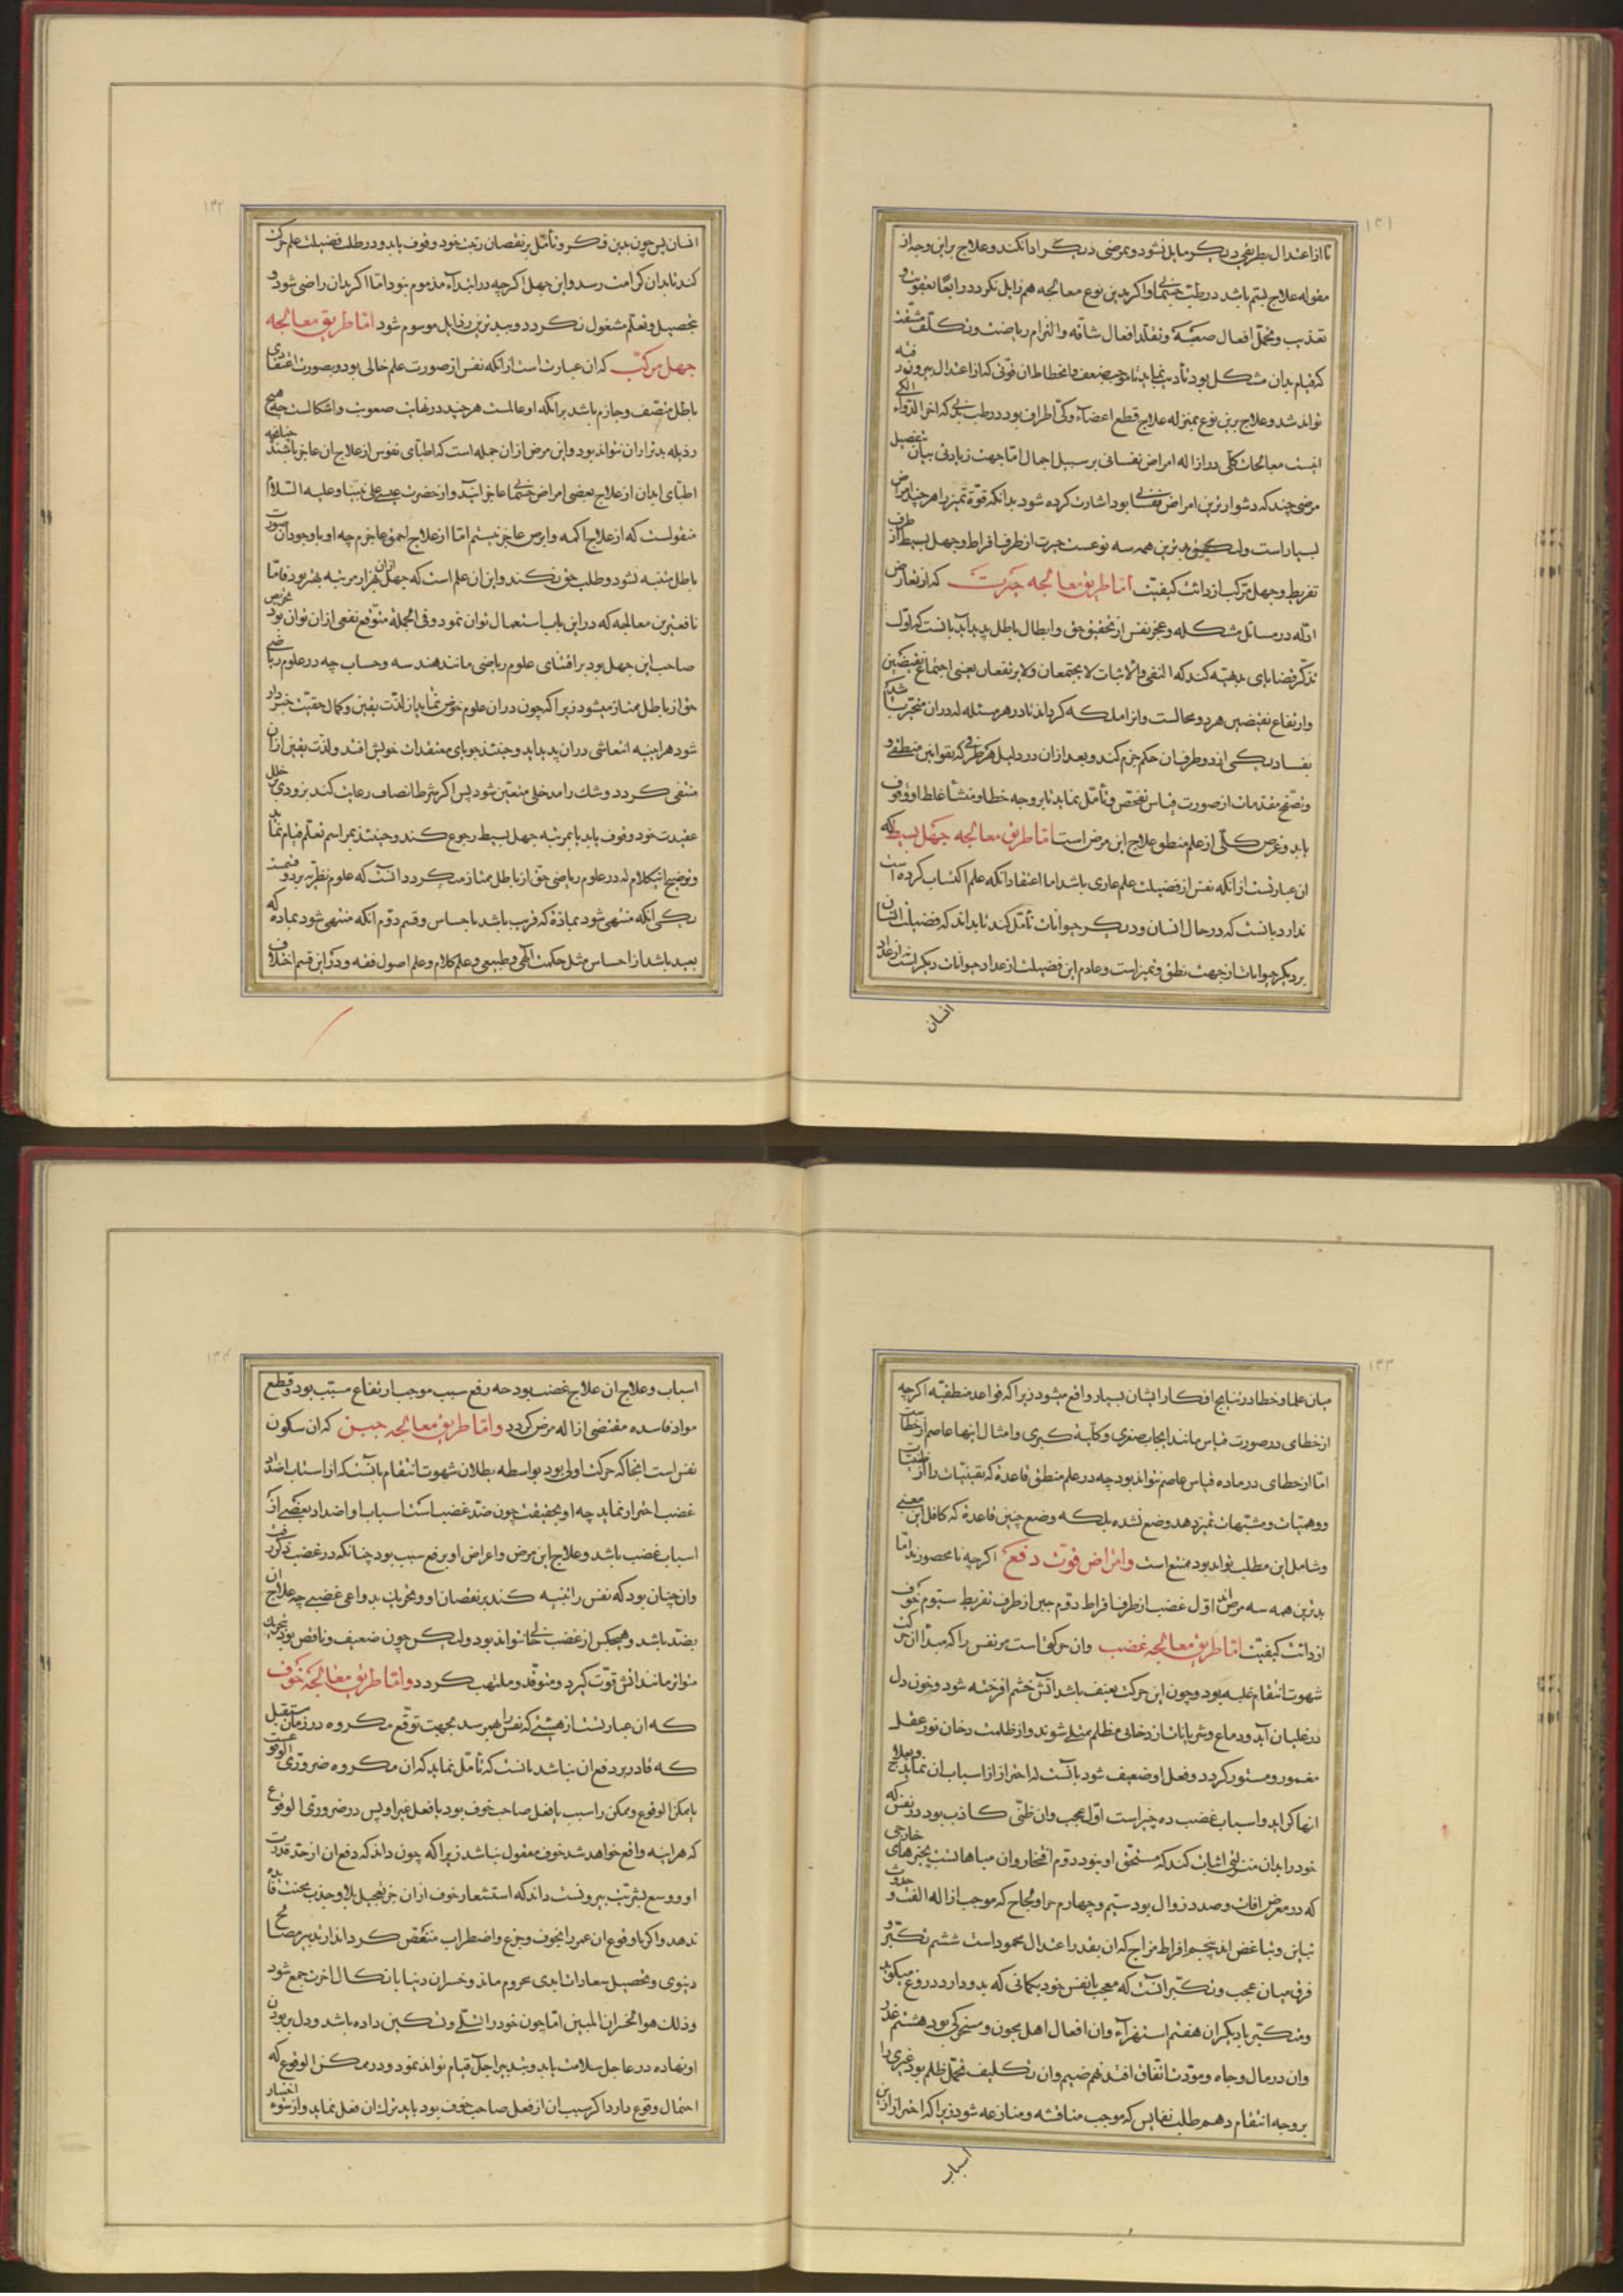 ۱۳۱
تا از اعتدال بطریقی دیگر مایل نشود و بمرضی دیگر ادا نکند و علاج براین وجه از
مقوله علاج بسّم باشد در طبّ جسمانی و اگر بدین نوع معالجه هم زایل نگردد رابعاً بعقوبت و
تعذیب و تحمّل افعال صعبه و تقلّد افعال شاقّه و التزام ریاضت و تکلّف مشقت
که قیام بدان مشکل بود تأدیب نماید تا موجب ضعف و انحطاط ان قوّتی که از اعتدال بیرون رفته
تواند شد و علاج برین نوع بمنزله علاج قطع اعضاء و کیّ اطراف بود در طب بدنی که اخر الدّواء الکی
اینست معالجات کلّی در ازاله امراض نفسانی بر سبیل اجمال امّا جهت زیادتی بیان بتفصیل
مرضی چند که دشوارترین امراض نفسانی بود اشارت کرده شود بدانکه قوّة تمیز را هر چند امراض
بسیار است ولیکن بدترین همه سه نوعست حیرت از طرف افراط و جهل بسیط از طرف
تفریط و جهل مرکب از دائت کیفیّت امّا طریق معالجه حیرت که از تعارض
ادلّه در مسائل مشکله و عجز نفس از تحقیق حق و ابطال باطل پدید آید بانست که اوّل
تذکّر قضایای بدهیّه کند که النفی و الاثبات لا یجتمعان و لا یرتفعان یعنی اجتماع نقیضین
و ارتفاع نقیضین هر دو محالست و انرا ملکه گرداند تا در هر مسئله که در ان متحیّر باشد
بفساد یکی از دو طرف ان حکم جزم کند و بعد از ان در دلیل هر طرفی که بقوانین منطقی و
و تصفّح مقدمات از صورت قیاس تفحّص و تأمّل نماید تا بر وجه خطا و منشأ غلط او وقوف
یابد و غرض کلّی از علم منطق علاج این مرض است امّا طریق معالجه جهل بسیط که
ان عبارتست از انکه نفس از فضیلت علم عاری باشد اما اعتقاد انکه علم اکتساب کرده است
ندارد بانست که در حال انسان و دیگر حیوانات تأمّل کند تا بداند که فضیلت انسان
بر دیگر حیوانات از جهت نطق و تمیز است و عادم این فضیلت از عداد حیوانات دیگر است نه از عداد
انسان
۱۳۲
انسان پس چون بدین فکر و تأمّل بر نقصان رتبت خود وقوف یابد و در طلب فضیلت علم حرکت
کند تا بدان کرامت رسد و این جهل اگر چه در ابتداء مذموم نبود امّا اگر بدان راضی شود و
بتحصیل و تعلّم مشغول نگردد و ببدترین رذایل موسوم شود امّا طریق معالجه
جهل مرکّب که ان عبارت است از انکه نفس از صورت علم خالی بود و بصورت اعتقادی
باطل متّصف و جازم باشد بر انکه او عالمست هر چند در نهایت صعوبت و اشکالست چه هیچ
رذیله بدتر از ان نتواند بود و این مرض از ان جمله است که اطبّای نفوس از علاج ان عاجز باشند چنانچه
اطبّای ابدان از علاج بعضی امراض جسمانی عاجز ایند و از حضرت عیسی علی نبینا و علیه السّلام
منقولست که از علاج اکمه و ابرص عاجز نیستم امّا از علاج احمق عاجزم چه او با وجود ان صورت
باطل متنبّه نشود و طلب حق نکند و این ان علم است که جهل از ان هزار مرتبه بهتر بود فامّا
نافعترین معالجه که در این باب استعمال توان نمود و فی الجمله متوّقع نفعی از ان توان بود تحریص
صاحب این جهل بود بر اقتنای علوم ریاضی مانند هندسه و حساب چه در علوم ریاضی
حق از باطل ممتاز میشود زیرا که چون در ان علوم خوض نماید از لذّت یقین و کمال حقیّت خبردار
شود هراینه انتعاشی در ان پدید اید و حینئذ جویای معتقدات خویش افتد و لذّت یقین از ان
منتفی گردد و شک را مدخلی متعیّن شود پس اگر شرط انصاف رعایت کند بزودی بر خلل
عقیدت خود وقوف یابد یا بمرتبه جهل بسیط رجوع کند و حینئذ بمراسم تعلّم قیام نماید
و توضیح اینکلام که در علوم ریاضی حقّ از باطل ممتاز میگردد انست که علوم نظریّه بر دو قسمند
یکی انکه منتهی شود بمادّه که قریب باشد باحساس و قسم دوّم انکه منتهی شود بماده که
بعید باشد از احساس مثل حکمت الهی و طبیعی و علم کلام و علم اصول فقه و در این قسم اختلاف
۱۳۳
میان علما و خطا در نتایج افکار ایشان بسیار واقع میشود زیرا که قواعد منطقیّه اگر چه
از خطای در صورت قیاس مانند ایجاب صغری و کلّیة کبری و امثال اینها عاصم از خطاست
امّا از خطای در ماده قیاس عاصم نتواند بود چه در علم منطق قاعدهٔ که یقینیّات را از ظنیّات
و وهمیّات و مشتبهات تمیز دهد وضع نشده بلکه وضع چنین قاعدهٔ که کافل این معنی
و شامل این مطلب تواند بود ممتنع است و امراض قوّت دفع اگر چه نامحصورند امّا
بدترین همه سه مرض است اوّل غضب از طرف افراط دوّم جبن از طرف تفریط سیّوم خوف
از دائت کیفیّت امّا طریق معالجه غضب و ان حرکتی است مر نفس را که مبدأ ان حرکت
شهوت انتقام غلبه بود و چون این حرکت بعنف باشد اتش خشم افرخته شود و خون دل
در غلیان آید و دماغ و شریانات از دخانی مظلم ممتلی شوند و از ظلمت دخان نور عقل
مغمور و مستور گردد و فعل او ضعیف شود بانست که احتراز از اسباب ان نماید و بعلاج
انها گراید و اسباب غضب ده چیز است اوّل عجب و ان ظنّی کاذب بود در نفس که
خود را بدان منزلتی اثبات کند که مستحق او نبود دوّم افتخار و ان مباهاتست بچیزهای خارجی
که در معرض افات و صدد زوال بود سیّم و چهارم مراء و لجاج که موجب ازاله الفت و حدوث
تباین و تباغض اند پنجم افراط مزاح که ان بقدر اعتدال محمود است ششم تکبّر و
فرق میان عجب و تکبّر انست که معجب با نفس خود بگمانی که بدو دارد دروغ میگوید
و متکبّر با دیگران هفتم استهزاء و ان افعال اهل مجون و سخرگی بود هشتم غدر
و ان در مال و جاه و مودّت اتّفاق افتد نهم ضیم و ان تکلیف تحمّل ظلم بود غیری را
بر وجه انتقام دهم طلب نفایس که موجب منافشه و منازعه شود زیرا که احتراز از این
اسباب
۱۳۴
اسباب و علاج ان علاج غضب بود چه رفع سبب موجب ارتفاع مسبّب بود و قطع
مواد فاسده مقتضی ازاله مرض گردد و امّا طریق معالجه جبن که ان سکون
نفس است انجا که حرکت اولی بود بواسطه بطلان شهوت انتقام بانست که از اسباب اضداد
غضب احتراز نماید چه او بحقیقت چون ضدّ غضب است اسباب او اضداد بعضی از
اسباب غضب باشد و علاج این مرض و اعراض او برفع سبب بود چنانکه در غضب ذکر رفت
و ان چنان بود که نفس را تنبیه کند بر نقصان او و تحریک بدواعی غضبی چه علاج ان
بضدّ باشد و هیچکس از غضب خالی نتواند بود ولیکن چون ضعیف و ناقص بود بتحریک
متواتر مانند اتش قوّت گیرد و متوقّد و ملتهب گردد و امّا طریق معالجه خوف
که ان عبارتست از هیئتی که نفس را همی رسد بجهت توقّع مکروه در زمان مستقبل
که قادر بر دفع ان نباشد بانست که تأمّل نماید که ان مکروه ضروری الوقوعست
یا ممکن الوقوع و ممکن را سبب یا فعل صاحب خوف بود یا فعل غیر او پس در ضروری الوقوع
که هراینه واقع خواهد شد خوف معقول نباشد زیرا که چون داند که دفع ان از حدّ قدرت
او و وسع بشریّت بیرونست داند که استشعار خوف از ان جز تعجیل بلا و جذب محنت فایده
ندهد و اگر تا وقوع ان عمر را بخوف و جزع و اضطراب منغّص گرداند از تدبیر مصالح
دنیوی و تحصیل سعادات ابدی محروم ماند و خسران دنیا با نکال اخرت جمع شود
و ذلک هو الخسران المبین امّا چون خود را تسلّی و تسکین داده باشد و دل بر بودن
او نهاده در عاجل سلامت یابد و بتدبیر اجل قیام تواند نمود و در ممکن الوقوع که
احتمال وقوع دارد اگر سبب ان از فعل صاحب خوف بود باید بترک ان فعل نماید و از سوء اختیار